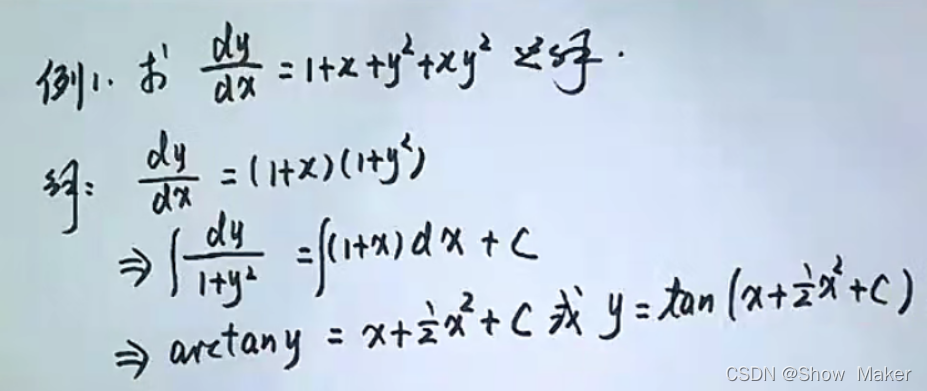 例1. 求 dy/dx = 1+x+y²+xy² 之解.
解: dy/dx = (1+x)(1+y²)
⇒ ∫ dy/1+y² = ∫(1+x)dx + C
⇒ arctany = x+½x²+C 或 y = tan(x+½x²+C)
CSDN @Show Maker